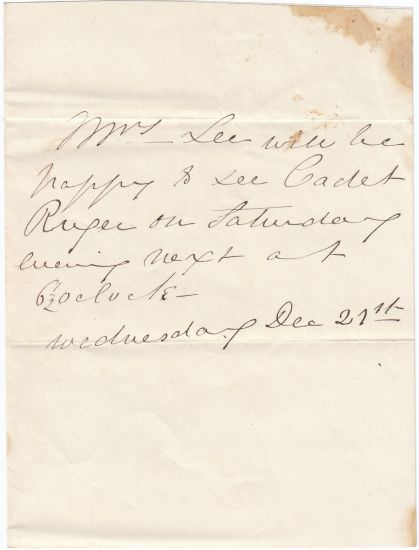 Mrs Lee will be
happy to see Cadet
Ruger on Saturday
evening next at
6½ oclock—
Wednesday Dec 21st